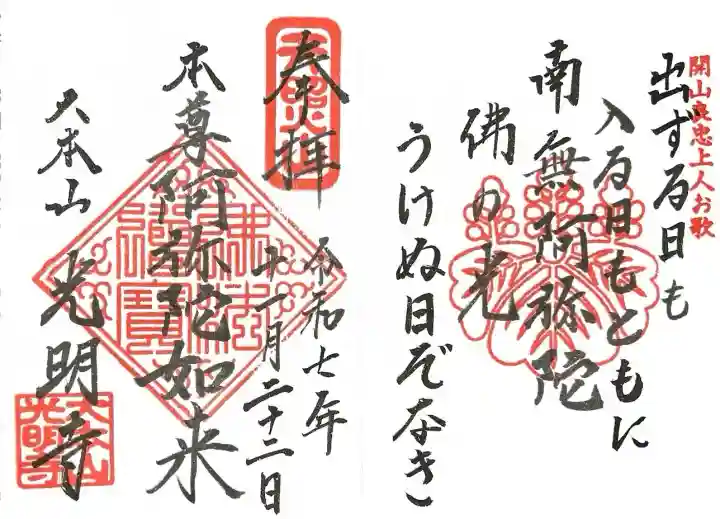 開山良忠上人お歌
出ずる日も
入る日もともに
南無阿弥陀
佛の光
うけぬ日ぞなき
奉拝
令和七年
十一月二十二日
本尊阿弥陀如来
大本山 光明寺
佛法僧寶
大本山
光明寺